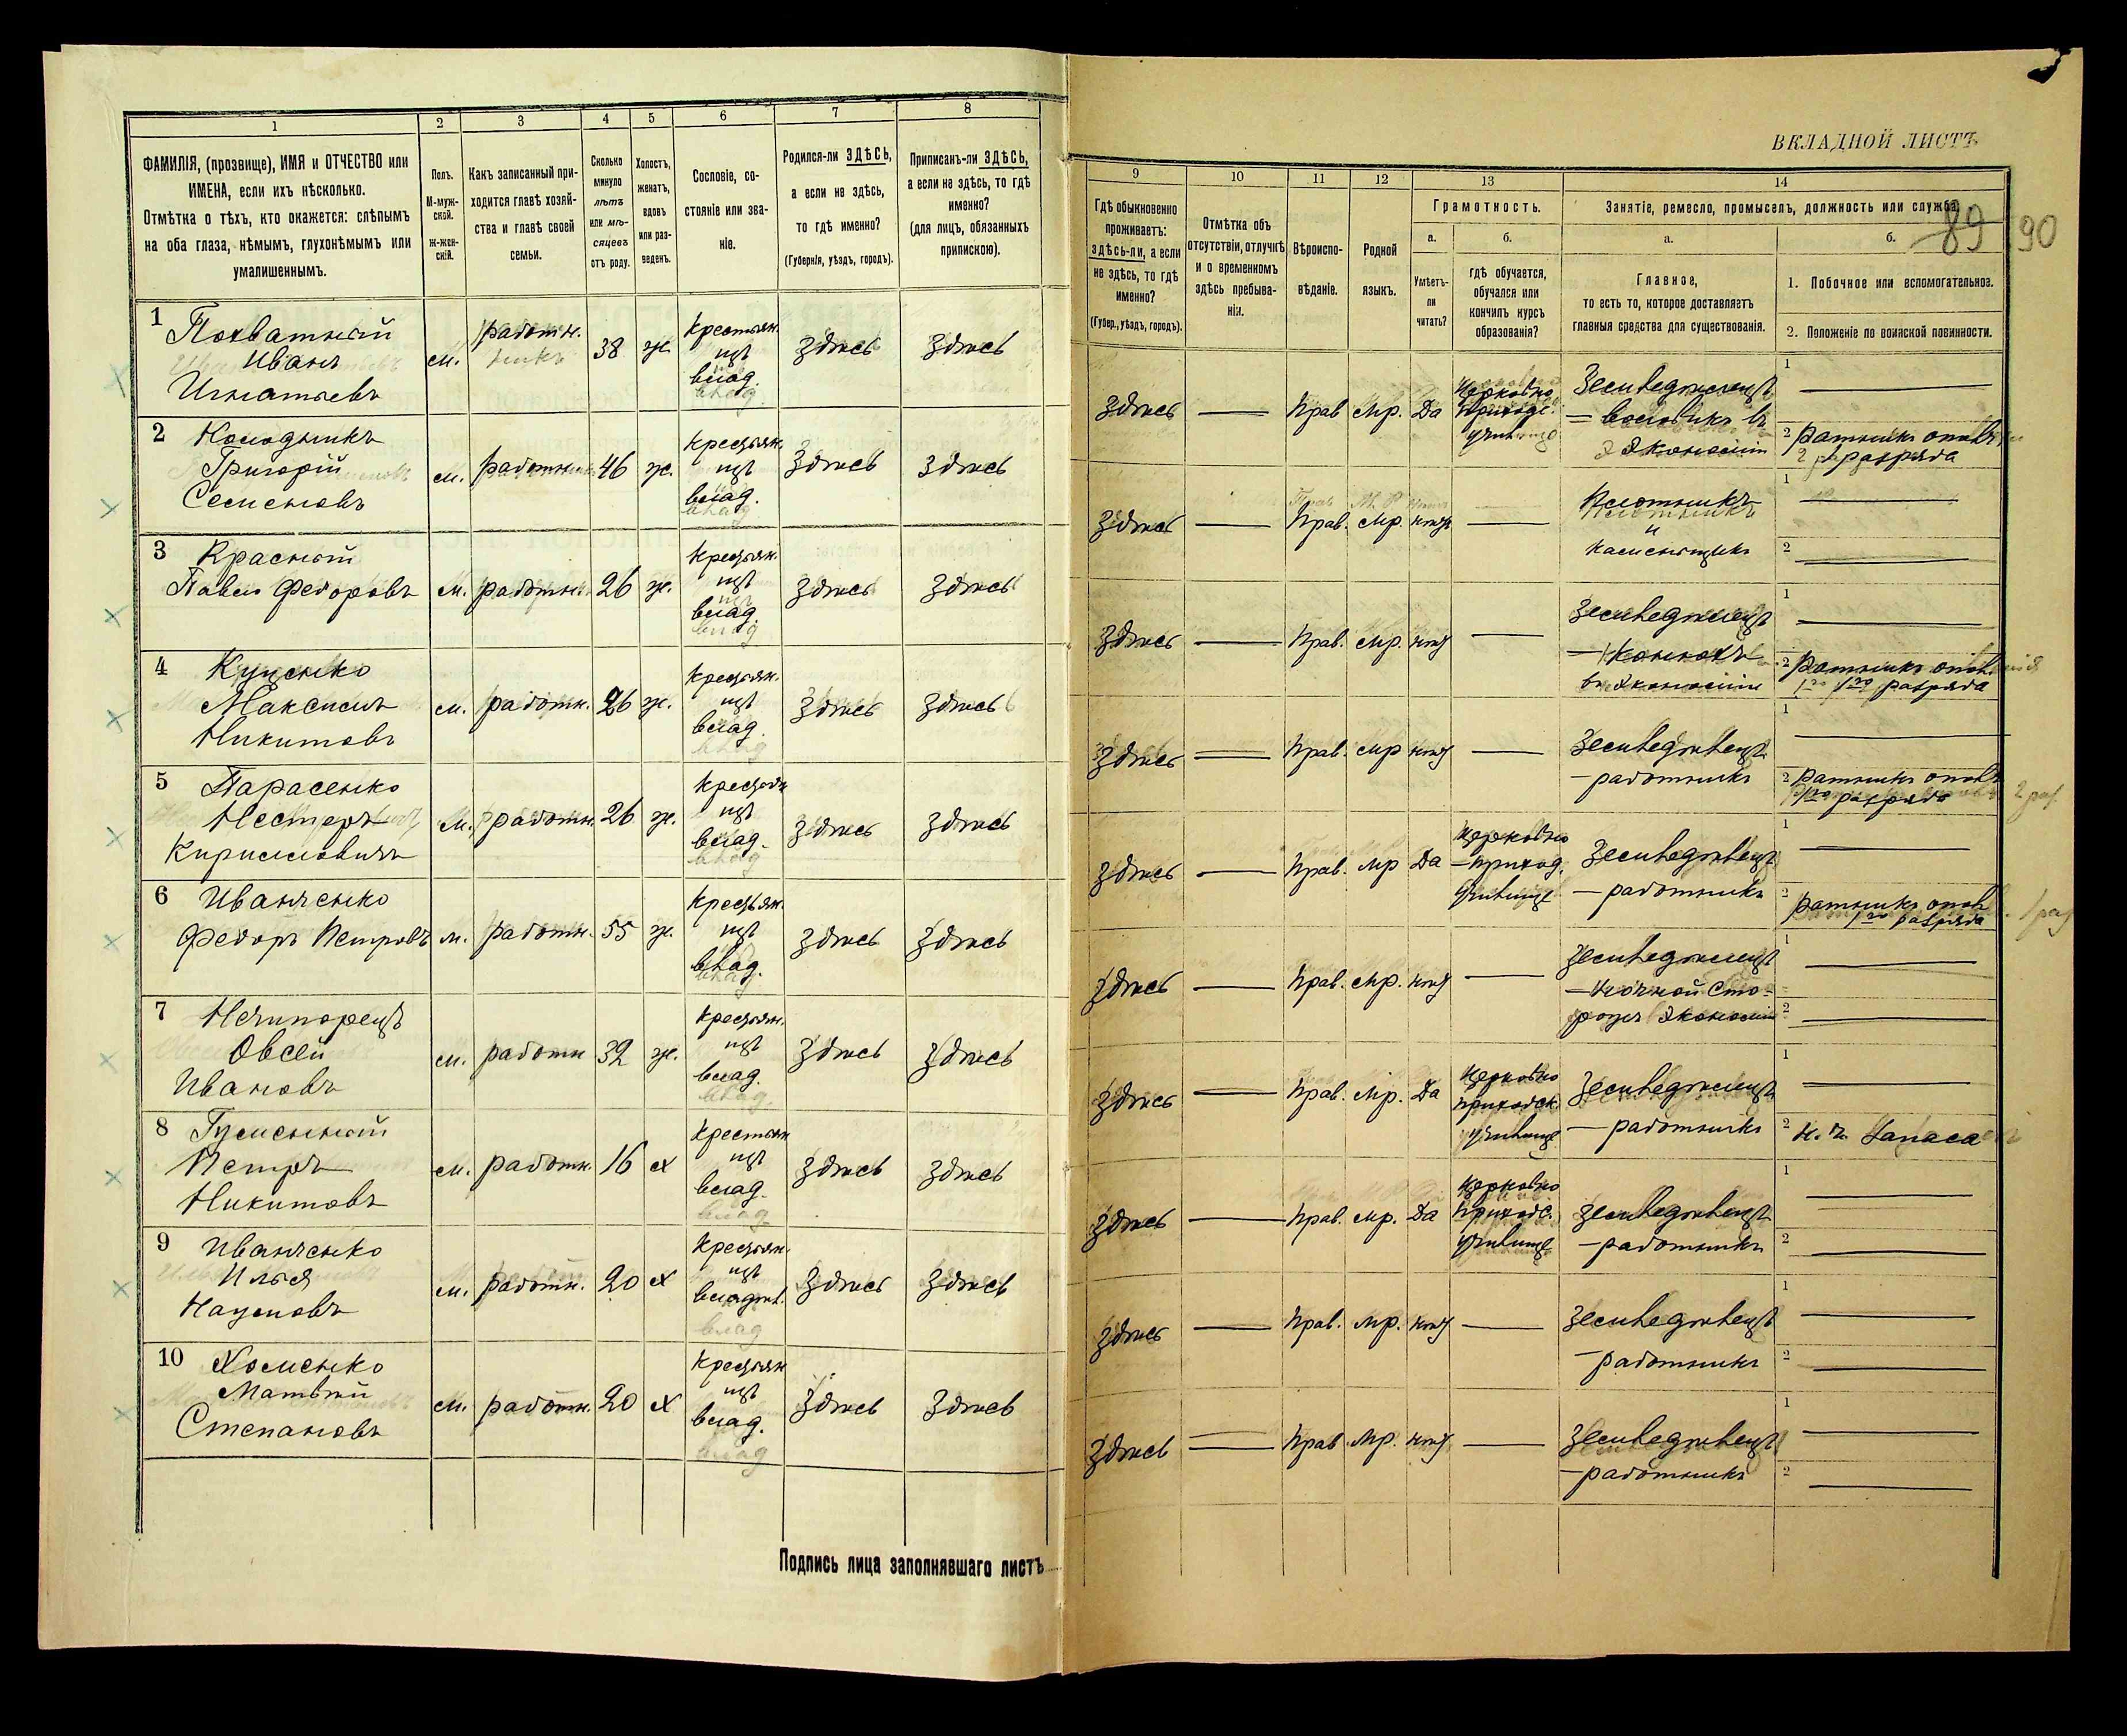 ВКЛАДНОЙ ЛИСТЪ
89 90
1 2 3 4 5 6 7 8
ФАМИЛІЯ, (прозвище), ИМЯ и ОТЧЕСТВО или
ИМЕНА, если ихъ нѣсколько.
Отмѣтка о тѣхъ, кто окажется: слѣпымъ
на оба глаза, нѣмымъ, глухонѣмымъ или
умалишеннымъ.
Полъ.
М-муж-
ской.
ж-жен-
скій.
Какъ записанный при-
ходится главѣ хозяй-
ства и главѣ своей
семьи.
Сколько
минуло
лѣтъ
или мѣ-
сяцевъ
отъ роду.
Холостъ,
женатъ,
вдовъ
или раз-
веденъ.
Сословіе, со-
стояніе или зва-
ніе.
Родился-ли ЗДѢСЬ,
а если не здѣсь,
то гдѣ именно?
(Губернія, уѣздъ, городъ).
Приписанъ-ли ЗДѢСЬ,
а если не здѣсь, то гдѣ
именно?
(для лицъ, обязанныхъ
припискою).
9 10 11 12 13 14
Гдѣ обыкновенно
проживаетъ:
здѣсь-ли, а если
не здѣсь, то гдѣ
именно?
(Губер., уѣздъ, городъ).
Отмѣтка объ
отсутствіи, отлучкѣ
и о временномъ
здѣсь пребыва-
ніи.
Вѣроиспо-
вѣданіе.
Родной
языкъ.
Грамотность.
а.
Умѣетъ-
ли
читать?
б.
гдѣ обучается,
обучался или
кончилъ курсъ
образованія?
Занятіе, ремесло, промыселъ, должность или служба.
а.
Главное,
то есть то, которое доставляетъ
главныя средства для существованія.
б.
1. Побочное или вспомогательное.
2. Положеніе по воинской повинности.
1 Похватный
Иванъ
Игнатьевъ
м. работн. 38 ж. крестьян.
изъ
влад.
здѣсь здѣсь
здѣсь — Прав мр. Да
Церковно
приходс.
училище
Земледѣлецъ
— воловикъ въ
экономіи
1 —
2 ратникъ опол.
2 разряда
2 Колодникъ
Григорій
Семеновъ
м. работник 46 ж. крестьян.
изъ
влад.
здѣсь здѣсь
здѣсь — Прав. мр. нѣтъ —
Плотникъ
и
каменьщикъ
1 —
2 —
3 Красный
Павелъ Федоровъ
м. работн. 26 ж. крестьян.
изъ
влад.
здѣсь здѣсь
здѣсь — Прав. мр. нѣтъ —
Земледѣлецъ
— конюхъ
въ экономіи
1 —
2 ратникъ опол.
1го разряда
4 Куценко
Максимъ
Никитовъ
м. работн. 26 ж. крестьян.
изъ
влад.
здѣсь здѣсь
здѣсь — Прав. мр нѣтъ —
Земледѣлецъ
— работникъ
1 —
2 ратникъ опол.
1го разряда
5 Парасенко
Несторъ
Кирилловичъ
м. работн. 26 ж. крестьян
изъ
влад.
здѣсь здѣсь
здѣсь — Прав. мр Да
Церковно
— приход.
училище
Земледѣлецъ
— работникъ
1 —
2 ратникъ опол.
1го разряда
6 Иванченко
Федоръ Петровъ
м. работн. 55 ж. крестьян.
изъ
влад.
здѣсь здѣсь
здѣсь — Прав. мр. нѣтъ —
Земледѣлецъ
— ночной сто-
рожъ экономіи
1 —
2 —
7 Нечипорецъ
Овсей
Ивановъ
м. работн 32 ж. крестьян.
изъ
влад.
здѣсь здѣсь
здѣсь — Прав. мр. Да
Церковно
приходск.
училище
Земледѣлецъ
— работникъ
1 —
2 н. ч. запаса
8 Гуменный
Петръ
Никитовъ
м. работн. 16 х крестьян
изъ
влад.
здѣсь здѣсь
здѣсь — Прав. мр. Да
Церковно
Приходс.
училище
Земледѣлецъ
— работникъ
1 —
2 —
9 Иванченко
Илья
Наумовъ
м. работн. 20 х крестьян.
изъ
владѣл.
здѣсь здѣсь
здѣсь — Прав. мр. нѣтъ —
Земледѣлецъ
— работникъ
1 —
2 —
10 Хоменко
Матвѣй
Степановъ
м. работн. 20 х крестьян
изъ
влад.
здѣсь здѣсь
здѣсь — Прав мр. нѣтъ —
Земледѣлецъ
— работникъ
1 —
2 —
Подпись лица заполнявшаго листъ